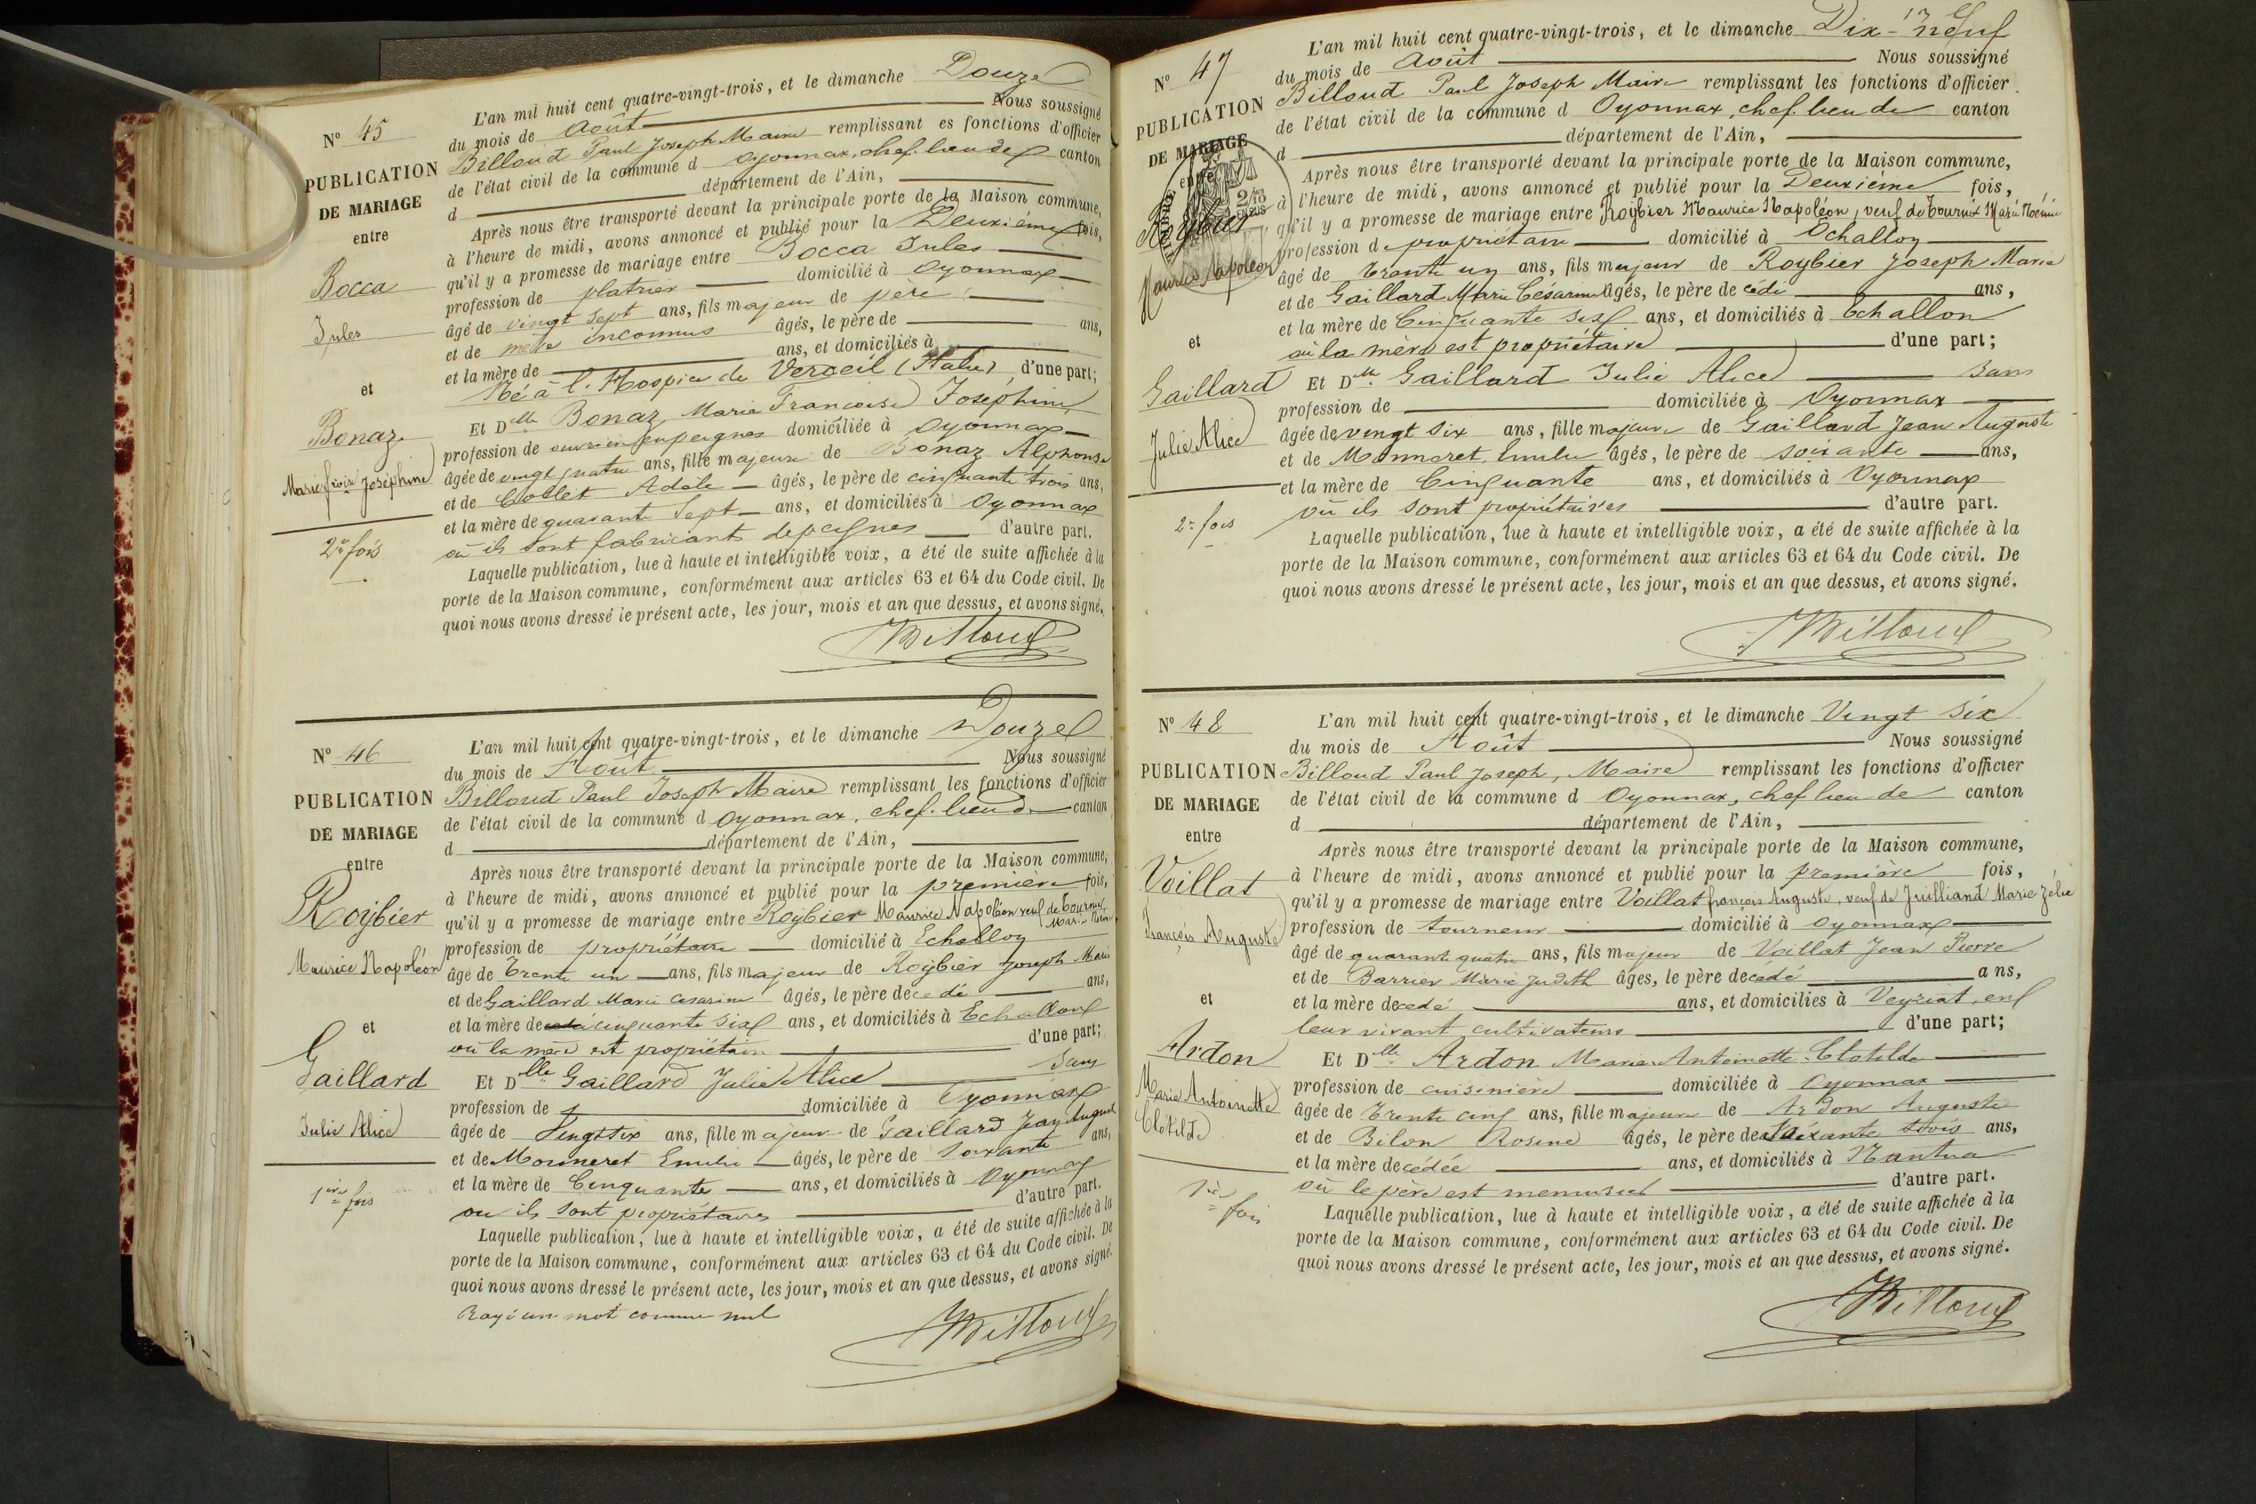 N° 45
PUBLICATION
DE MARIAGE
entre
Bocca
Jules
et
Bonaz
Marie Fçoise Joséphine
2e fois
L'an mil huit cent quatre-vingt-trois, et le dimanche Douze
du mois de Août Nous soussigné
Billoud Paul Joseph Maire remplissant es fonctions d'officier
de l'état civil de la commune d Oyonnax, chef-lieu de canton
d département de l'Ain,
Après nous être transporté devant la principale porte de la Maison commune,
à l'heure de midi, avons annoncé et publié pour la Deuxième fois,
qu'il y a promesse de mariage entre Bocca Jules
profession de platrier domicilié à Oyonnax
âgé de vingt sept ans, fils majeur de père
et de mère inconnus âgés, le père de ans,
et la mère de ans, et domiciliés à
Né à l'Hospice de Verceil (Italie) d'une part;
Et Dlle Bonaz Marie Françoise Joséphine
profession de ouvrière en peignes domiciliée à Oyonnax
âgée de vingt quatre ans, fille majeure de Bonaz Alphonse
et de Collet Adèle âgés, le père de cinquante trois ans,
et la mère de quarante Sept ans, et domiciliés à Oyonnax
où ils sont fabricants de peignes d'autre part.
Laquelle publication, lue à haute et intelligible voix, a été de suite affichée à la
porte de la Maison commune, conformément aux articles 63 et 64 du Code civil. De
quoi nous avons dressé le présent acte, les jour, mois et an que dessus, et avons signé.
Billoud
N° 46
PUBLICATION
DE MARIAGE
entre
Roybier
Maurice Napoléon
et
Gaillard
Julie Alice
1ière fois
L'an mil huit cent quatre-vingt-trois, et le dimanche Douze
du mois de Août Nous soussigné
Billoud Paul Joseph Maire remplissant les fonctions d'officier
de l'état civil de la commune d Oyonnax, chef-lieu de canton
d département de l'Ain,
Après nous être transporté devant la principale porte de la Maison commune,
à l'heure de midi, avons annoncé et publié pour la première fois,
qu'il y a promesse de mariage entre Roybier Maurice Napoléon veuf de Tournier
profession de propriétaire domicilié à Echallon
âgé de Trente un ans, fils majeur de Roybier Joseph Marie
et de Gaillard Marie Césarine âgés, le père décédé ans,
et la mère de cinquante six ans, et domiciliés à Echallon
où la mère est propriétaire d'une part;
Et Dlle Gaillard Julie Alice Sans
profession de domiciliée à Oyonnax
âgée de Vingt six ans, fille majeure de Gaillard Jean Auguste
et de Monneret Emilie âgés, le père de soixante ans,
et la mère de Cinquante ans, et domiciliés à Oyonnax
ou ils sont propriétaires d'autre part.
Laquelle publication, lue à haute et intelligible voix, a été de suite affichée à la
porte de la Maison commune, conformément aux articles 63 et 64 du Code civil. De
quoi nous avons dressé le présent acte, les jour, mois et an que dessus, et avons signé.
Rayé un mot comme nul
Billoud
N° 47
PUBLICATION
DE MARIAGE
entre
Roybier
Maurice Napoléon
et
Gaillard
Julie Alice
2e fois
L'an mil huit cent quatre-vingt-trois, et le dimanche Dix-neuf
du mois de Août Nous soussigné
Billoud Paul Joseph Maire remplissant les fonctions d'officier
de l'état civil de la commune d Oyonnax, chef-lieu de canton
d département de l'Ain,
Après nous être transporté devant la principale porte de la Maison commune,
à l'heure de midi, avons annoncé et publié pour la Deuxième fois,
qu'il y a promesse de mariage entre Roybier Maurice Napoléon, veuf de Tournier Marie Noémie
profession de propriétaire domicilié à Echallon
âgé de trente un ans, fils majeur de Roybier Joseph Marie
et de Gaillard Marie Césarine âgés, le père de cédé ans,
et la mère de Cinquante six ans, et domiciliés à Echallon
où la mère est propriétaire d'une part;
Et Dlle Gaillard Julie Alice Sans
profession de domiciliée à Oyonnax
âgée de vingt six ans, fille majeure de Gaillard Jean Auguste
et de Monneret Emilie âgés, le père de soixante ans,
et la mère de Cinquante ans, et domiciliés à Oyonnax
où ils sont propriétaires d'autre part.
Laquelle publication, lue à haute et intelligible voix, a été de suite affichée à la
porte de la Maison commune, conformément aux articles 63 et 64 du Code civil. De
quoi nous avons dressé le présent acte, les jour, mois et an que dessus, et avons signé.
Billoud
N° 48
PUBLICATION
DE MARIAGE
entre
Voillat
François Auguste
et
Ardon
Marie Antoinette
Clotilde
1ère fois
L'an mil huit cent quatre-vingt-trois, et le dimanche Vingt Six
du mois de Août Nous soussigné
Billoud Paul Joseph, Maire remplissant les fonctions d'officier
de l'état civil de la commune d Oyonnax, chef-lieu de canton
d département de l'Ain,
Après nous être transporté devant la principale porte de la Maison commune,
à l'heure de midi, avons annoncé et publié pour la première fois,
qu'il y a promesse de mariage entre Voillat françois Auguste, veuf de Juilliand Marie Zélie
profession de tourneur domicilié à Oyonnax
âgé de quarante quatre ans, fils majeur de Voillat Jean Pierre
et de Barrier Marie Judith âgés, le père decedé ans,
et la mère decedé ans, et domiciliés à Veyriat, en
leur vivant cultivateurs d'une part;
Et Dlle Ardon Marie Antoinette Clotilde
profession de cuisinière domiciliée à Oyonnax
âgée de Trente cinq ans, fille majeure de Ardon Auguste
et de Bilon Rosine âgés, le père de soixante trois ans,
et la mère decédée ans, et domiciliés à Nantua
où le père est menuisier d'autre part.
Laquelle publication, lue à haute et intelligible voix, a été de suite affichée à la
porte de la Maison commune, conformément aux articles 63 et 64 du Code civil. De
quoi nous avons dressé le présent acte, les jour, mois et an que dessus, et avons signé.
Billoud